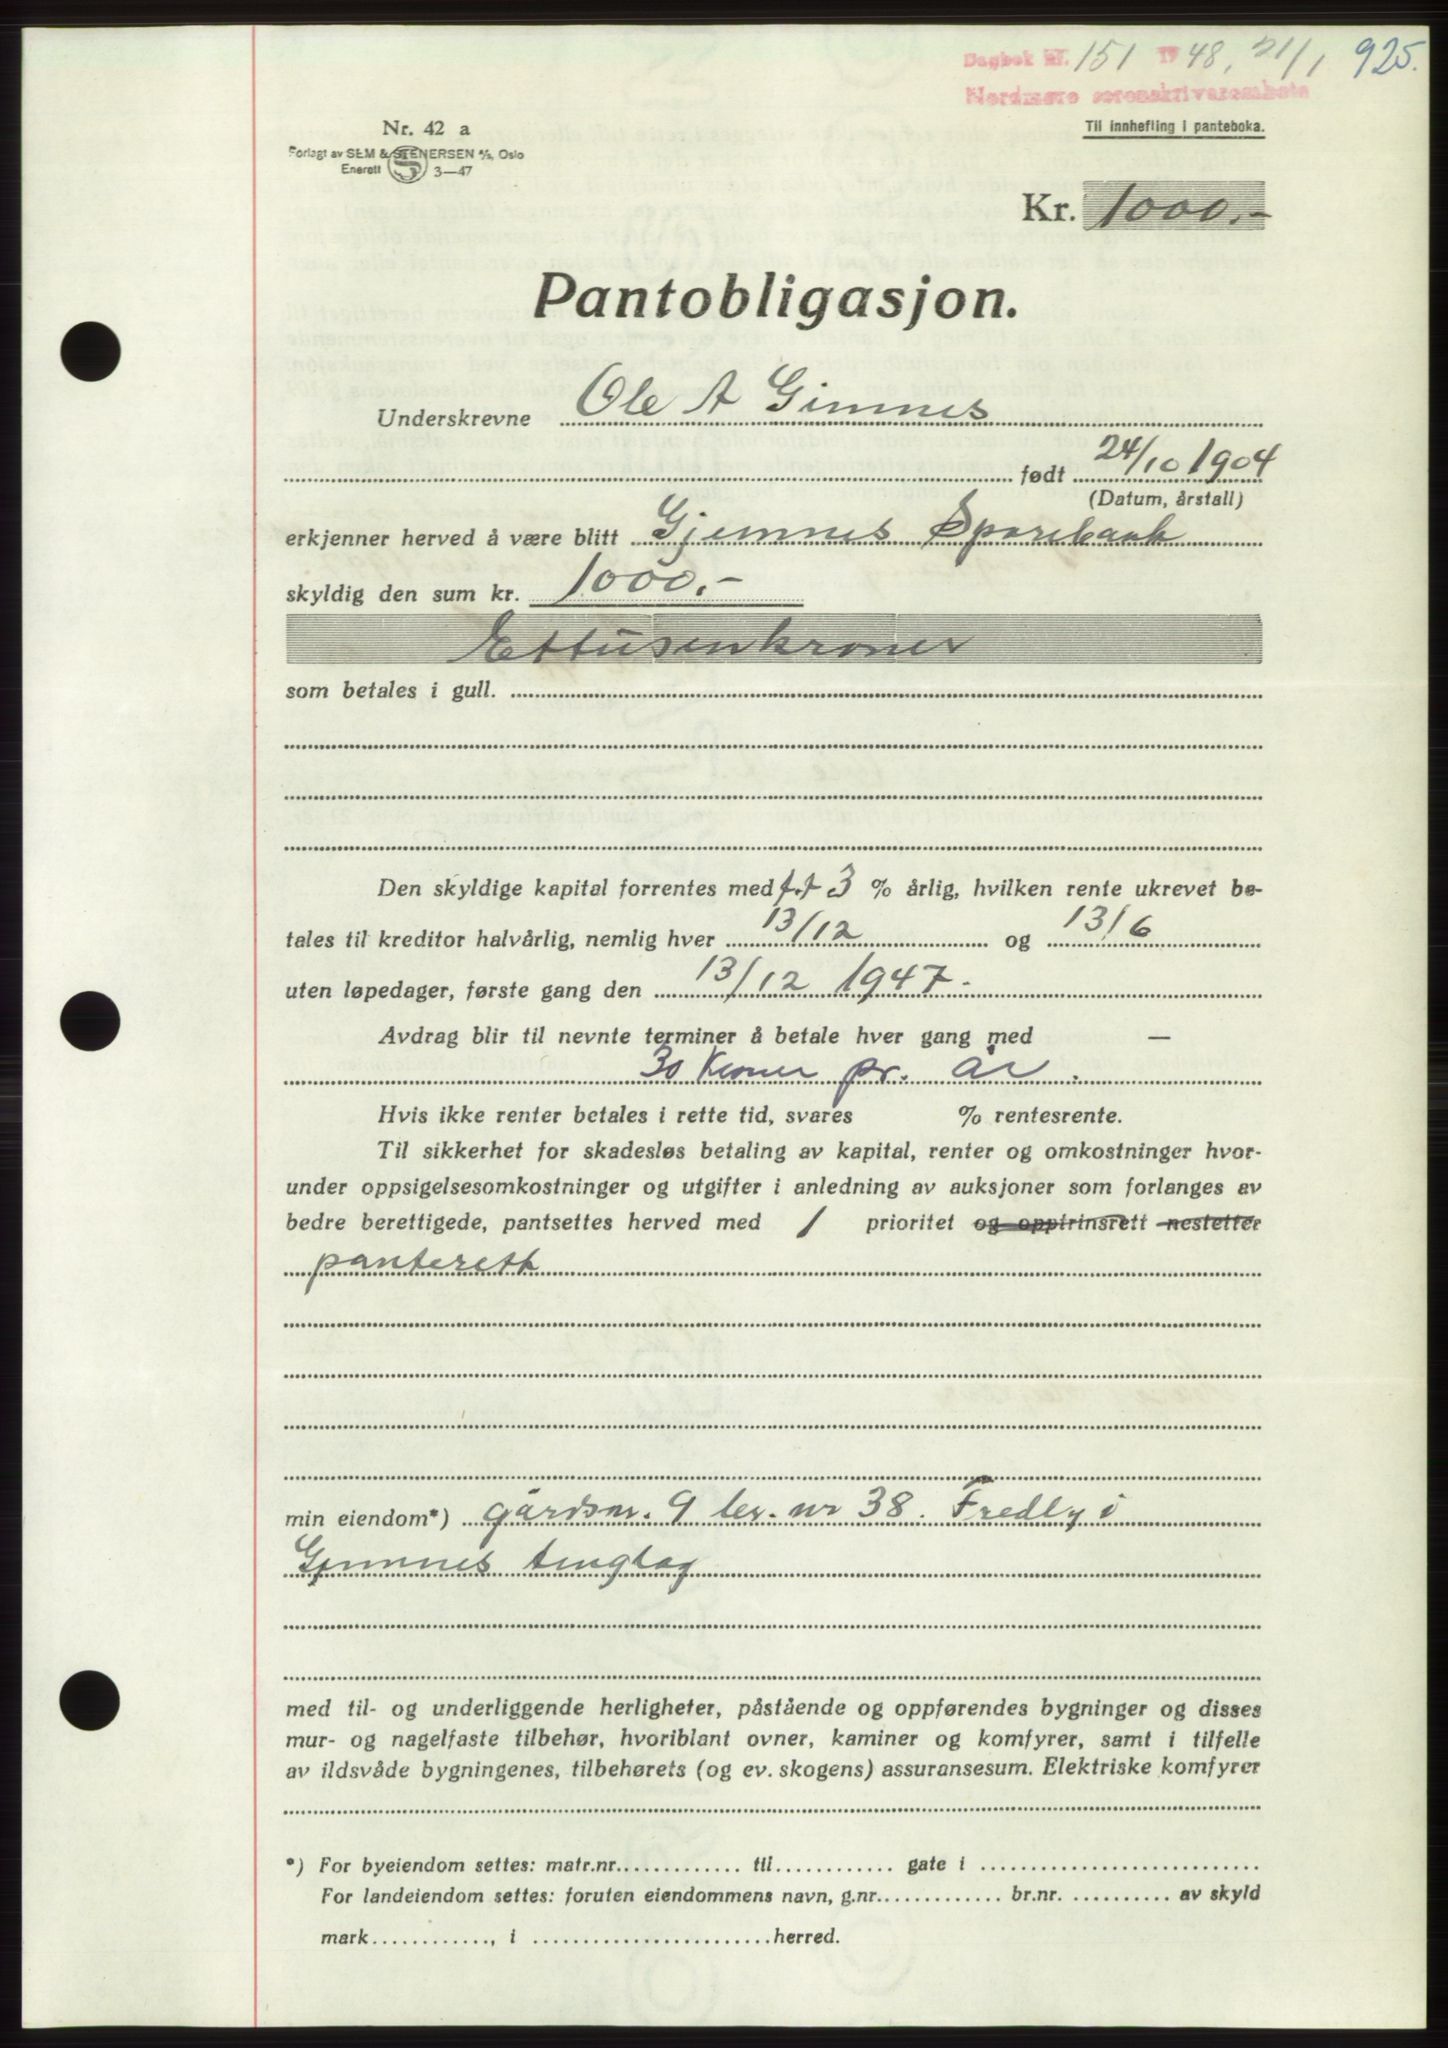 Dagbok nr. 151 1948, 21/1 925.
Nordmøre sorenskrivarembete
Nr. 42 a
Til innhefting i panteboka.
Forlagt av SEM & STENERSEN A/S, Oslo
Enerett S 3—47
Kr. 1000.-
Pantobligasjon.
Underskrevne Ole A Gimnes
født 24/10 1904
(Datum, årstall)
erkjenner herved å være blitt Gjemnes Sparebank
skyldig den sum kr. 1000.-
Ettusenkroner
som betales i gull.
Den skyldige kapital forrentes med f.t 3 % årlig, hvilken rente ukrevet be-
tales til kreditor halvårlig, nemlig hver 13/12 og 13/6
uten løpedager, første gang den 13/12 1947.
Avdrag blir til nevnte terminer å betale hver gang med —
30 Kroner pr. år.
Hvis ikke renter betales i rette tid, svares % rentesrente.
Til sikkerhet for skadesløs betaling av kapital, renter og omkostninger hvor-
under oppsigelsesomkostninger og utgifter i anledning av auksjoner som forlanges av
bedre berettigede, pantsettes herved med 1 prioritet og opptrinsrett nestetter
pantereth
min eiendom*) gårdsnr. 9 br. nr 38. Fredly i
Gjemnes tinglag
med til- og underliggende herligheter, påstående og oppførendes bygninger og disses
mur- og nagelfaste tilbehør, hvoriblant ovner, kaminer og komfyrer, samt i tilfelle
av ildsvåde bygningenes, tilbehørets (og ev. skogens) assuransesum. Elektriske komfyrer
*) For byeiendom settes: matr.nr. til gate i
For landeiendom settes: foruten eiendommens navn, g.nr. br.nr. av skyld
mark, i herred.